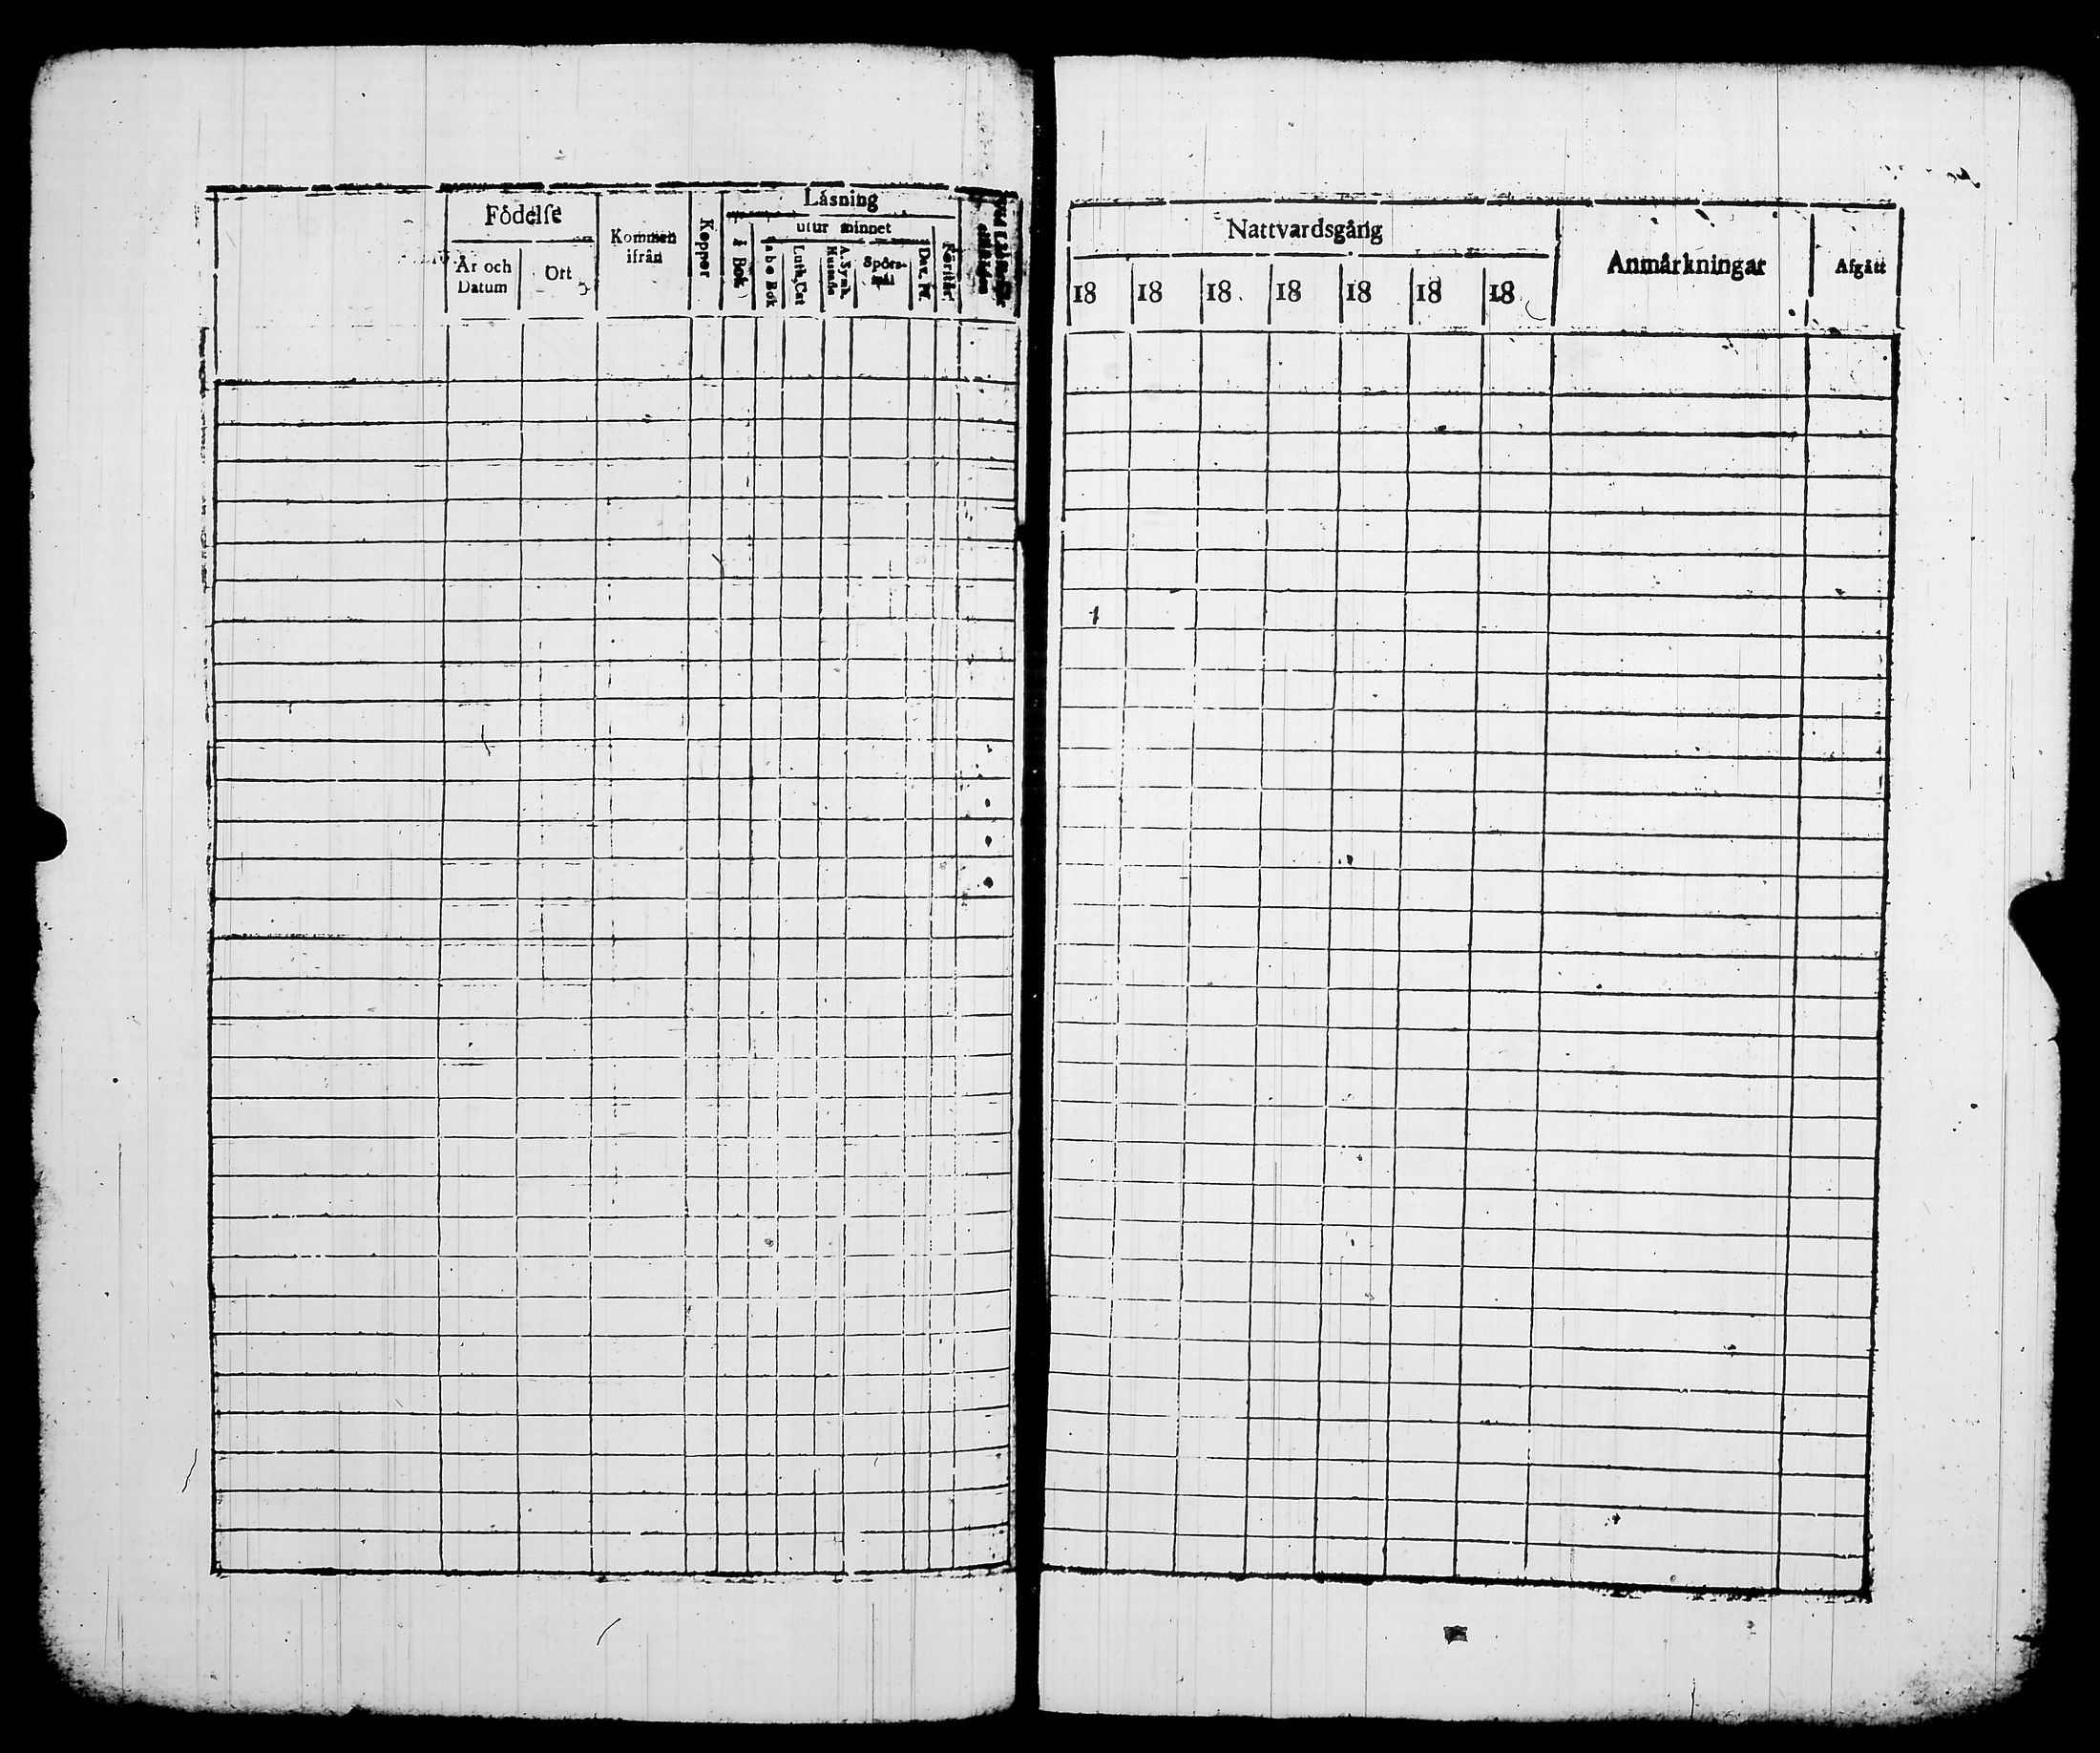 Födelſe
År och
Datum
Ort
Kommen
ifrån
Koppor
Läsning
å Bok
utur minnet
a b c Bok
Luth. Cat
A. Symb.
Hustafla
Spörs-
mål
Dav. Ps.
Nattvardsgång
18
18
18
18
18
18
18
Anmärkningar
Afgått